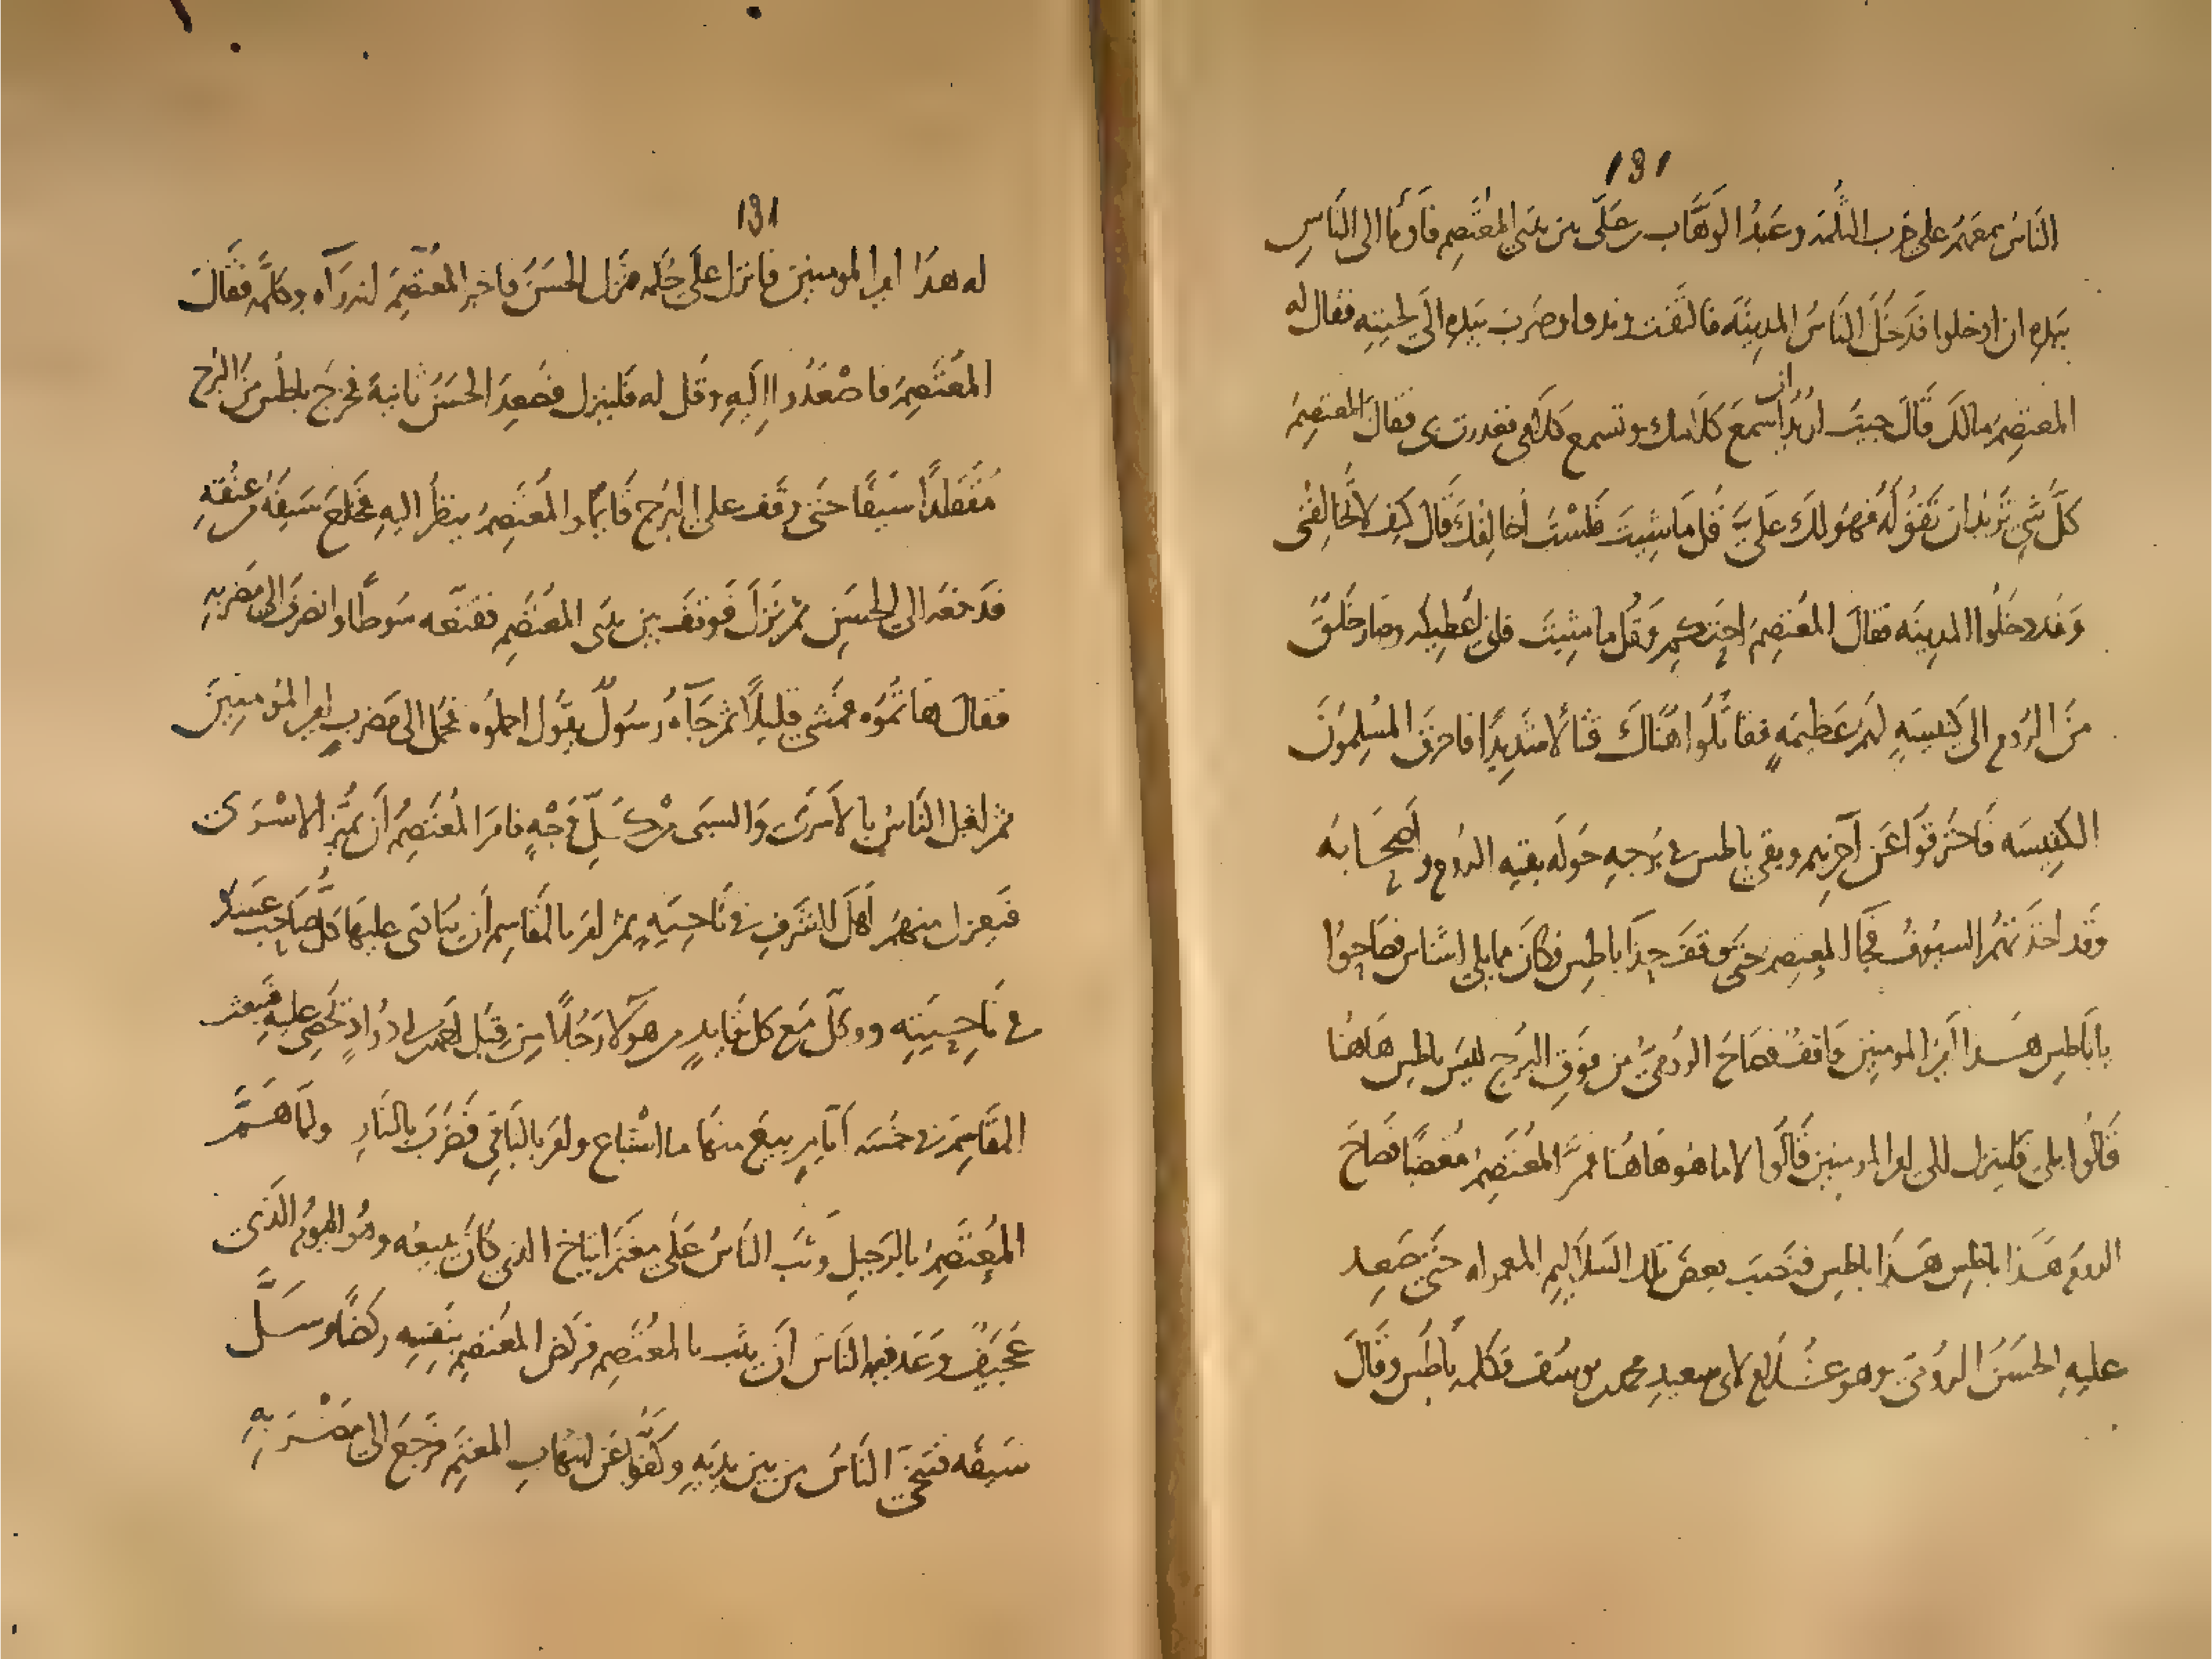 ١٣١
الناس معهم على حرب الثلمة وعبد الوهاب بن علي بين يدي المعتصم فأومأ الى الناس
بيده ان ادخلوا فدخل الناس المدينة فالتفت وندوا وضرب بيده الى لحيته فقال له
المعتصم مالك قال جيت اريد ان اسمع كلامك وتسمع كلامي فغدرت بى فقال المعتصم
كل شي تريد ان تقوله فهو لك علي قل ما شيت فلست اخالفك قال كيف لا تخالفني
وقد دخلوا المدينه فقال المعتصم احتكم وقل ما شيت فاني اعطيكه وصار خلق
من الروم الى كنيسة لهم عظيمة فقاتلوا هناك قتالا شديدا فاحرق المسلمون
الكنيسه فاحترقوا عن آخرهم وبقي ياطس في برجه حوله بقيه الروم واصحابه
وقد اخذتهم السيوف فجا المعتصم حتى وقف حذا ياطس فكان مما يلي اشناس فصاحوا
يا ياطس هذا امير المومنين واقف فصاح الرومي من فوق البرج ليس ياطس هاهنا
قالوا بلى فلينزل الى امير المومنين قالوا لا ما هو هاهنا فمر المعتصم مغضبا فصاح
الروم هذا ياطس هذا ياطس فنصب بعض تلك السلاليم المعمولة حتى صعد
عليه الحسن الرومي وهو غلام لابي سعيد محمد بن يوسف فكلمه ياطس وقال
١٣١
له هذا امير المومنين فانزل على حكمه فنزل الحسن فاخبر المعتصم انه رآه وكلمه فقال
المعتصم فاصعد اليه وقل له فلينزل فصعد الحسن ثانية فخرج ياطس من البرج
متقلدا سيفا حتى وقف على البرج قايما والمعتصم ينظر اليه فخلع سيفه من عنقه
فدفعه الى الحسن ثم نزل فوقف بين يدى المعتصم فقنعه سوطا وانصرف الى مضربه
فقال هاتموه فمشى قليلا ثم جآه رسول يقول احملوه فحمل الى مضرب امير المومنين
ثم اقبل الناس بالاسرى والسبى من كل وجه فامر المعتصم أن تميز الاسرى
فيعزل منهم اهل الشرف في ناحية ثم امر بالمقاسم ان ينادى عليها كل صاحب عسكر
في ناحيته ووكل مع كل قايد من هولا رجلا من قبل احمد بن ابي دواد تحصي عليه فبيعت
المقاسم في خمسه ايام بيع منها ما استباع وامر بالباقي فضرب بالنار ولما هم
المعتصم بالرحيل وثب الناس على مغنم ايتاخ الذي كان يبيعه وهو اليوم الذي
عجيف وعد فيه الناس ان يثب بالمعتصم فركض المعتصم بنفسه ركضا وسل
سيفه فتنحى الناس من بين يديه وكفوا عن انتهاب المغنم فرجع الى مضربه